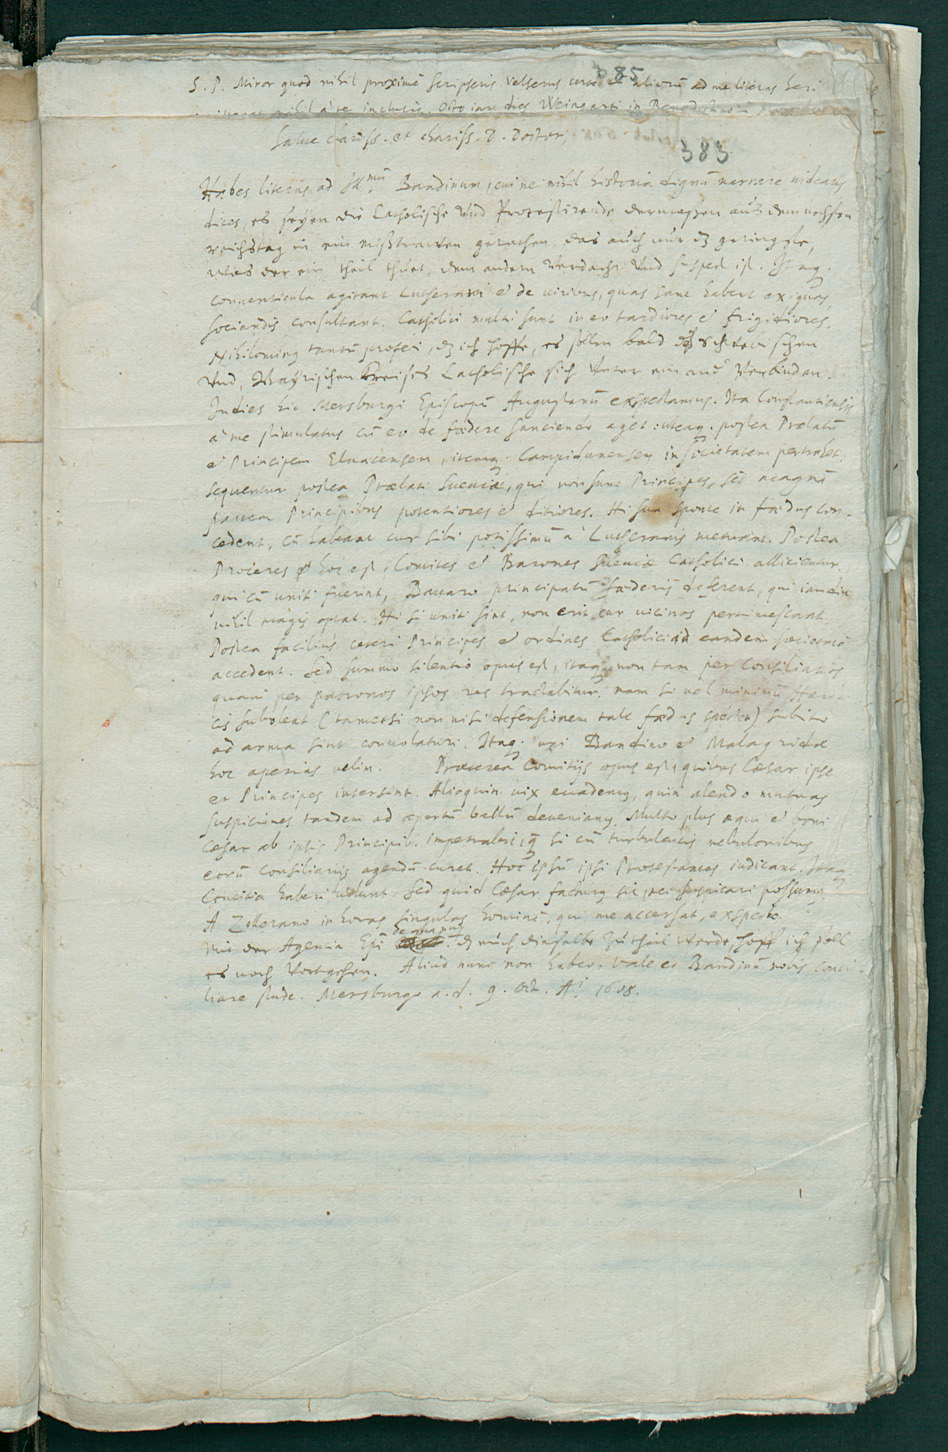 385
S. P. Miror quod nihil proximè scripseris Velserus aliorũ ad me literas heri
Octo iam dies Weingarti in
Salue clariss. et chariss. D. Doctor,
383
Habes literas ad Ill.mũ Bandinum, cui ne nihil historia dignũ narrare videaris
dices, es seyen die Catholische vnd Protestirende dermassen auß dem nechsten
reichstag in ein mißtrauen gerathen, das auch nur dz geringste,
was der ein theil thuet, dem andern verdacht vnd suspect ist. Itaq.
conuenticula agitant Lutherani et de viribus, quas sane habent exiguas
sociandis consultant. Catholici multi sunt in eo tardiores et frigidiores.
Nihilominus tantũ profeci, dz ich hoffe, es sollen bald die schwebischen
vnd Bayrischen Kreises Catholische sich vnter ein and. verbinden.
Indies hic Mersburgi Episcopũ Augustanũ expectamus. Ita Constantiensis
à me stimulatus cũ eo de fœdere sanciendo aget: uterq. postea Prælatũ
et Principem Elvacensem, itemq. Campidunensem in societatem pertrahet.
sequentur postea Prælati Sueviæ, qui non sunt Principes, sed magnã
partem Principibus potentiores et ditiores. Hi sua sponte in fœdus con-
cedent, cũ habeant cur sibi potissimũ à Lutheranis metuant. Postea
Proceres hoc est, Comites et Barones Sueviæ Catholici allicientur.
qui cũ vniti fuerint, Bauaro principatũ fœderis deferent, qui iamdiu
nihil magis optat. Hi si vniti sint, non erit cur vicinos pertimescant.
Postea facilius ceteri Principes et ordines Catholici ad eandem societatẽ
accedent. Sed summo silentio opus est, itaq. non tam per Consiliarios
quam per patronos ipsos res tractabitur. nam si vel minimũ hæreti-
cis suboleat (tametsi non nisi defensionem tale fœdus spectet) subito
ad arma sint conuolaturi. Itaq. uni Bandino et Malagridæ
hoc aperias velim. Præterea Comitijs opus est, quibus Cæsar ipse
et Principes intersint. Alioquin vix euademus, quin alendo mutuas
suspiciones tandem ad apertũ bellũ deueniamus. Multo plus æqui et boni
Cæsar ab ipsis Principib. impetrabit, q̃ si cũ turbulentis nebulonibus
eorũ Consiliarijs agendũ curet. Hoc ipsũ ipsi Protestantes iudicant. Itaq.
Comitia haberi volunt. Sed quid Cæsar facturus sit, nec suspicari possumus
A Zollerano in horas singulas hominẽ, qui me accersat, expecto.
Mit der Agentia Epi de manus dz mich dieselbe zu theil werde, hoff ich soll
es noch fortgehen. Aliud nunc non habeo. Vale et Bandinũ nobis conci-
liare stude. Mersburgo a. d. 9. Oct. A.i 1608.